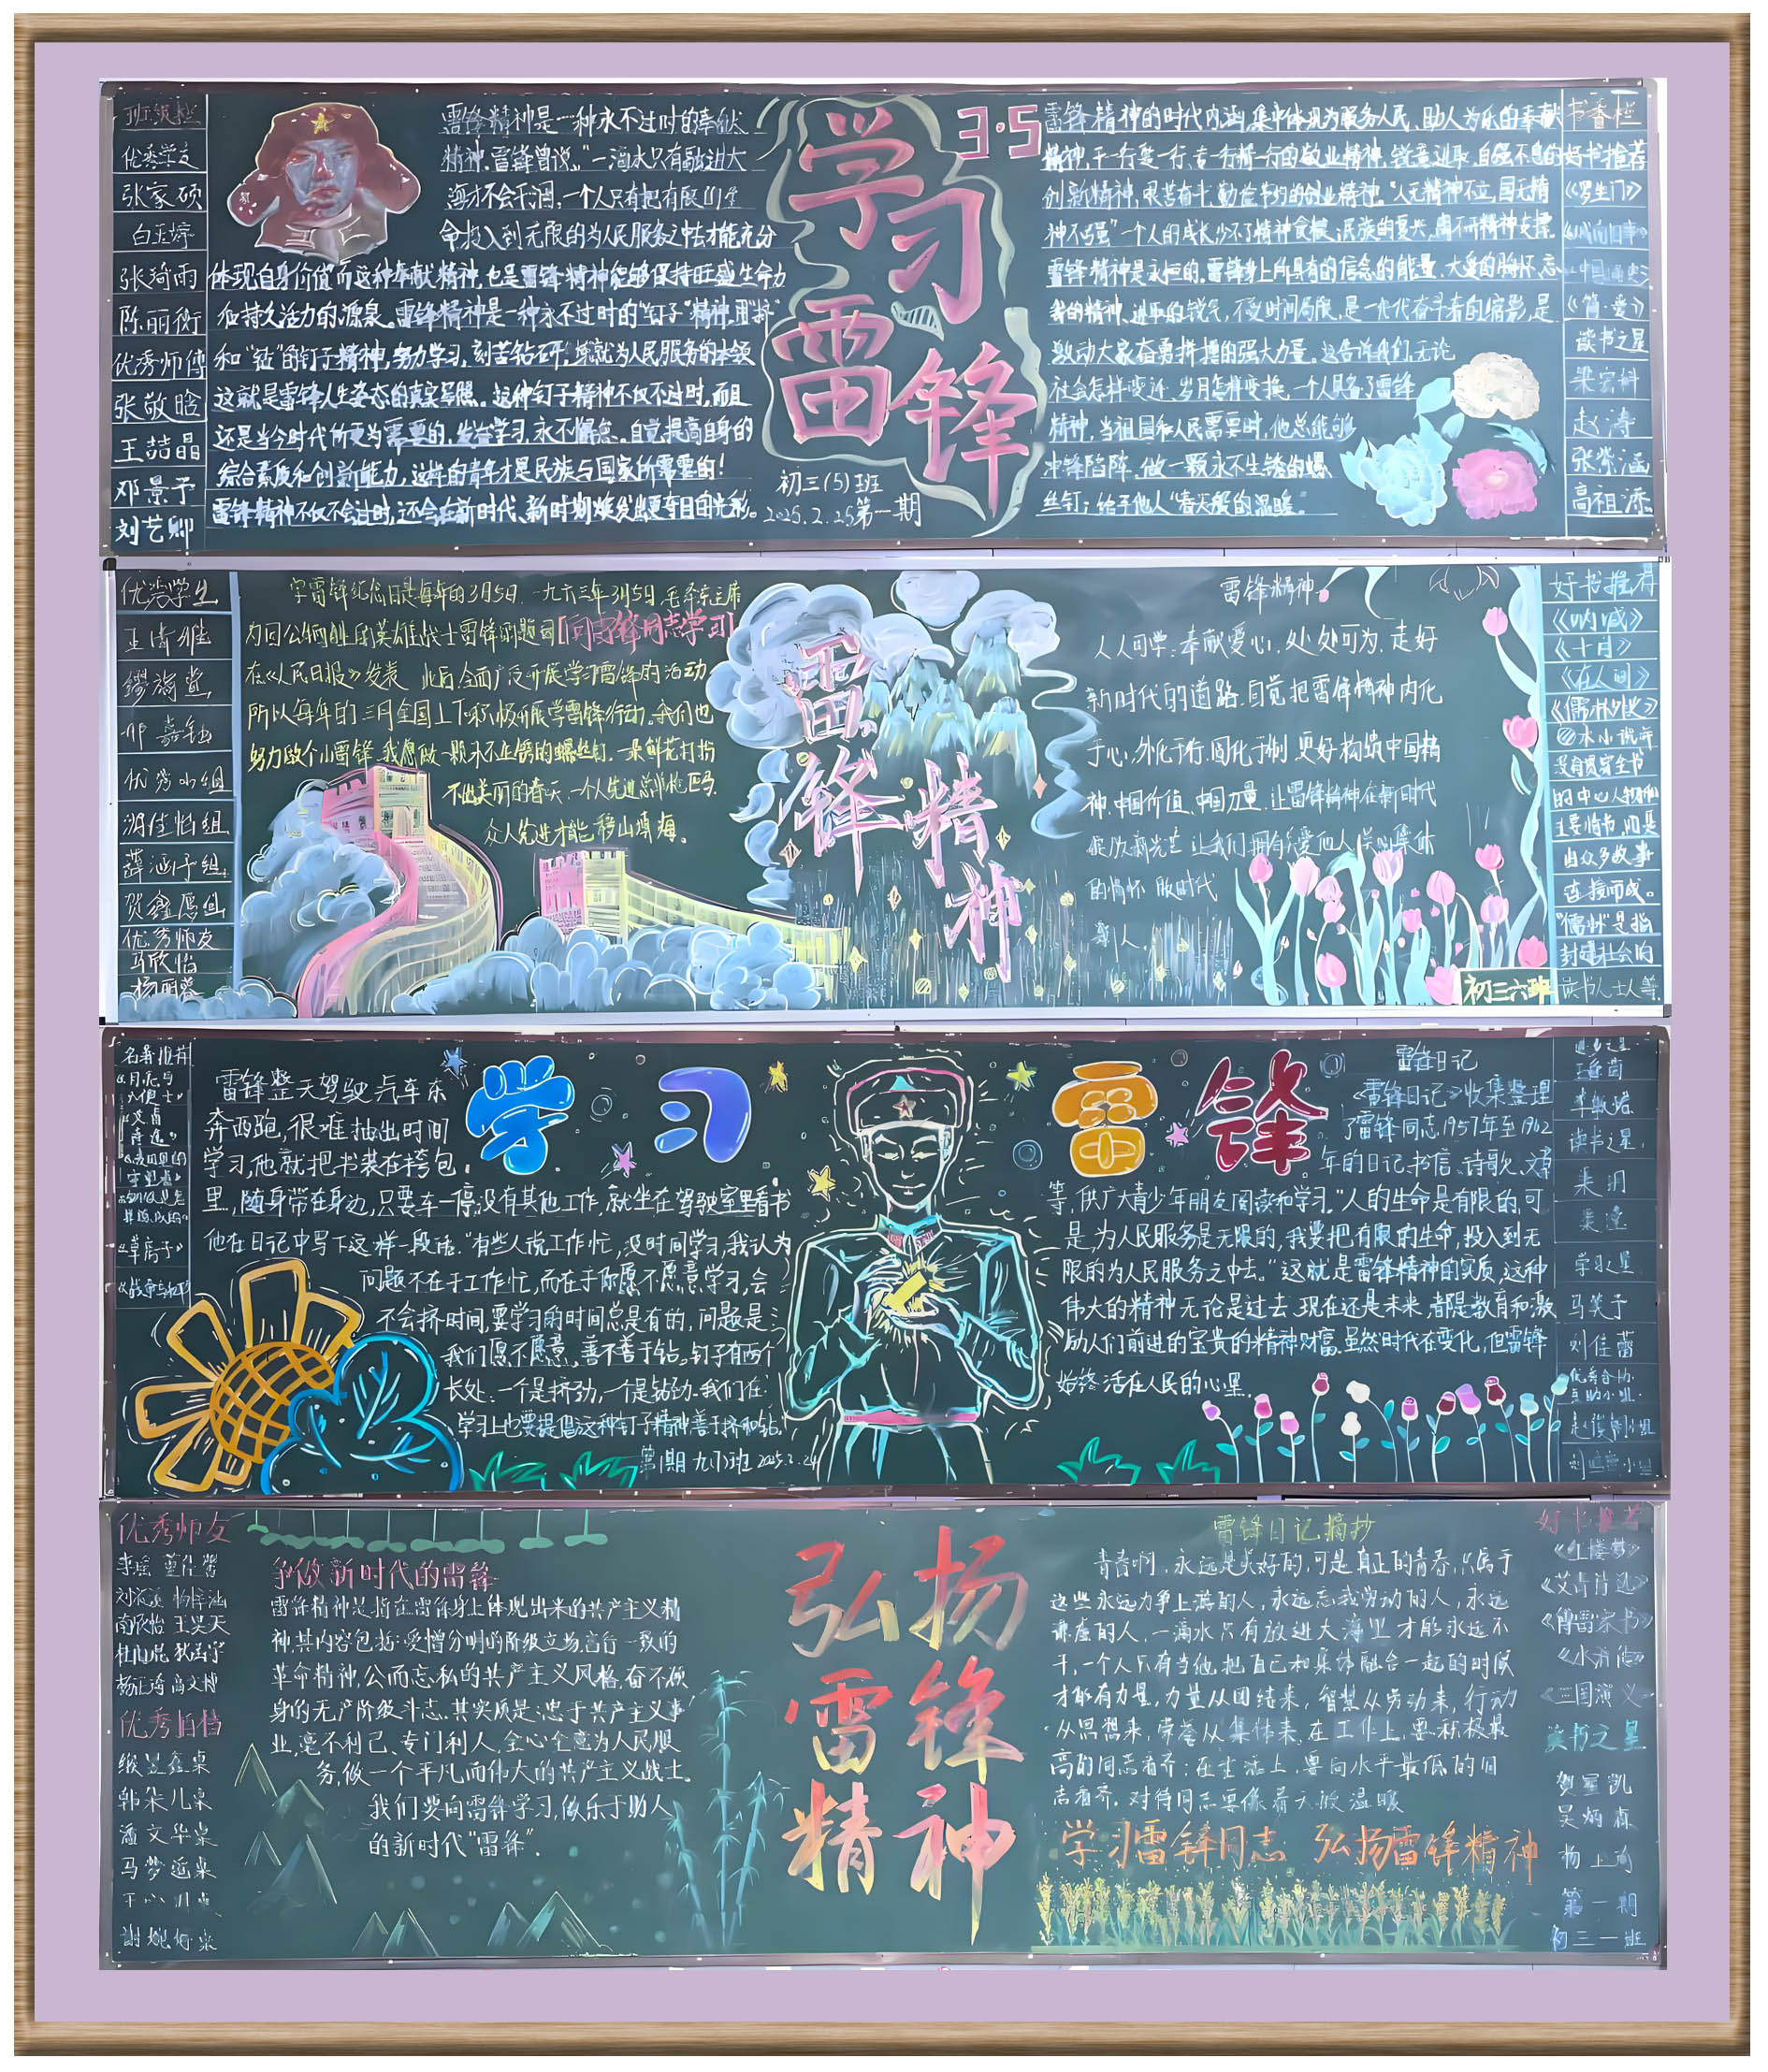 优秀学友
张家硕
白玉婷
张琦雨
陈丽衔
优秀师傅
张敬晗
王喆晶
邓景予
刘艺卿
雷锋精神是一种永不过时的奉献
精神。雷锋曾说:"一滴水只有融进大
海才不会干涸,一个人只有把有限的生
命投入到无限的为人民服务之中去才能充分
体现自身价值"而这种奉献精神,也是雷锋精神能够保持旺盛生命力
和持久活力的源泉。雷锋精神是一种永不过时的"钉子"精神,用"挤"
和"钻"的钉子精神,努力学习,刻苦钻研,练就为人民服务的本领
这就是雷锋人生姿态的真实写照。这种钉子精神不仅不过时,而且
还是当今时代所更为需要的,发奋学习,永不懈怠。自觉提高自身的
综合素质和创新能力,这样的青年才是民族与国家所需要的!
雷锋精神不仅不会过时,还会在新时代、新时期焕发出更夺目的光彩。
学习
雷锋
3·5
初三(5)班
2025.2.25第一期
雷锋精神的时代内涵,集中体现为服务人民、助人为乐的奉献
精神,干一行爱一行、专一行精一行的敬业精神,锐意进取、自强不息的
创新精神,艰苦奋斗,勤俭节约的创业精神。"人无精神不立,国无精
神不强"一个人的成长,少不了精神食粮,民族的复兴,离不开精神支撑
雷锋精神是永恒的,雷锋身上所具有的信念的能量、大爱的胸怀、忘
我的精神、进取的锐气,不受时间局限,是一代代奋斗者的缩影,是
激动大家奋勇拼搏的强大力量。这告诉我们,无论
社会怎样变迁、岁月怎样变换,一个人具备了雷锋
精神,当祖国和人民需要时,他总能够
冲锋陷阵,做一颗永不生锈的螺
丝钉;给予他人"春天般的温暖"
书香栏
好书推荐
《罗生门》
《城南旧事》
《简·爱》
读书之星
赵涛
张紫涵
高祖添
优秀学生
优秀小组
优秀师友
马欣怡
学雷锋纪念日是每年的3月5日,一九六三年3月5日,毛泽东主席
为因公牺牲的英雄战士雷锋的题词【向雷锋同志学习】
在《人民日报》发表 此后,全面广泛开展学习雷锋的活动
所以每年的三月全国上下积极开展学雷锋行动。我们也
努力做个小雷锋,我愿做一颗永不生锈的螺丝钉。一朵鲜花打扮
不出美丽的春天,一个人先进总是单枪匹马
众人先进才能移山填海。
雷锋精神
雷锋精神
人人可学;奉献爱心,处处可为,走好
新时代的道路,自觉把雷锋精神内化
于心,外化于行,固化于制,更好构筑中国精
神、中国价值、中国力量,让雷锋精神在新时代
绽放新光芒
的情怀 做时代
新人
初三六班
好书推荐
《呐喊》
《十月》
《在人间》
《儒林外史》
本小说并
没有贯穿全书
的中心人物和
主要情节,而是
由众多故事
连接而成。
"儒林"是指
封建社会的
读书人士人等
名著推荐
《月亮与
六便士》
《艾青
诗选》
《麦田里的
守望者》
《草房子》
《战争与和平》
雷锋整天驾驶汽车东
奔西跑,很难抽出时间
学习,他就把书装在挎包
里,随身带在身边,只要车一停,没有其他工作,就坐在驾驶室里看书
他在日记中写下这样一段话:"有些人说工作忙,没时间学习,我认为
问题不在于工作忙,而在于你愿不愿意学习,会
不会挤时间,要学习的时间总是有的,问题是
我们愿不愿意,善不善于钻。钉子有两个
长处:一个是挤劲,一个是钻劲。我们在
学习上也要提倡这种钉子精神善于挤和钻。"
第1期 九(7)班 2025.2.24
学习
雷锋
雷锋日记
《雷锋日记》收集整理
了雷锋同志1957年至1962
年的日记、书信、诗歌、文章
等,供广大青少年朋友阅读和学习。"人的生命是有限的,可
是,为人民服务是无限的,我要把有限的生命,投入到无
限的为人民服务之中去。"这就是雷锋精神的实质,这种
伟大的精神无论是过去、现在还是未来,都是教育和激
励人们前进的宝贵的精神财富。虽然时代在变化,但雷锋
始终活在人民的心里。
进步之星
读书之星
学习之星
马笑予
刘佳蕾
优秀合作
互助小组
优秀师友
杨正涛 高文博
优秀拍档
韩朵儿桌
潘文华桌
马梦遥桌
争做新时代的雷锋
雷锋精神是指在雷锋身上体现出来的共产主义精
神,其内容包括:爱憎分明的阶级立场,言行一致的
革命精神,公而忘私的共产主义风格,奋不顾
身的无产阶级斗志,其实质是:忠于共产主义事
业,毫不利己、专门利人,全心全意为人民服
务,做一个平凡而伟大的共产主义战士。
我们要向雷锋学习,做乐于助人
的新时代"雷锋"。
弘扬
雷锋
精神
雷锋日记摘抄
青春啊,永远是美好的,可是真正的青春,只属于
这些永远力争上游的人,永远忘我劳动的人,永远
谦虚的人,一滴水只有放进大海里才能永远不
干,一个人只有当他把自己和集体融合一起的时候
才能有力量,力量从团结来,智慧从劳动来,行动
从思想来,荣誉从集体来,在工作上,要向积极最
高的同志看齐;在生活上,要向水平最低的同
志看齐。对待同志要像春天般温暖
学习雷锋同志 弘扬雷锋精神
好书推荐
《红楼梦》
《艾青诗选》
《傅雷家书》
《水浒传》
《三国演义》
读书之星
贺星凯
吴炳森
第一期
初三一班